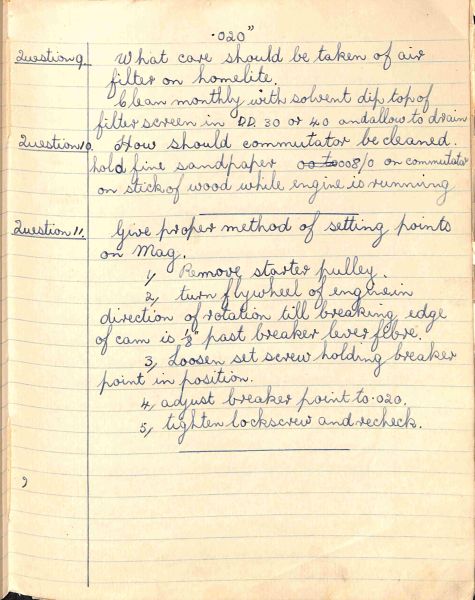 .020"
Question 9. What care should be taken of air
filter on homelite.
Clean monthly with solvent dip top of
filter screen in DD. 30 or 40 and allow to drain
Question 10. How should commutator be cleaned.
hold fine sandpaper 008/0 on commutator
on stick of wood while engine is running
Question 11. Give proper method of setting points
on Mag.
1, Remove starter pulley.
2, turn flywheel of engine in
direction of rotation till breaking edge
of cam is 1/8" past breaker lever fibre.
3, Loosen set screw holding breaker
point in position.
4, adjust breaker point to .020.
5, tighten lockscrew and recheck.